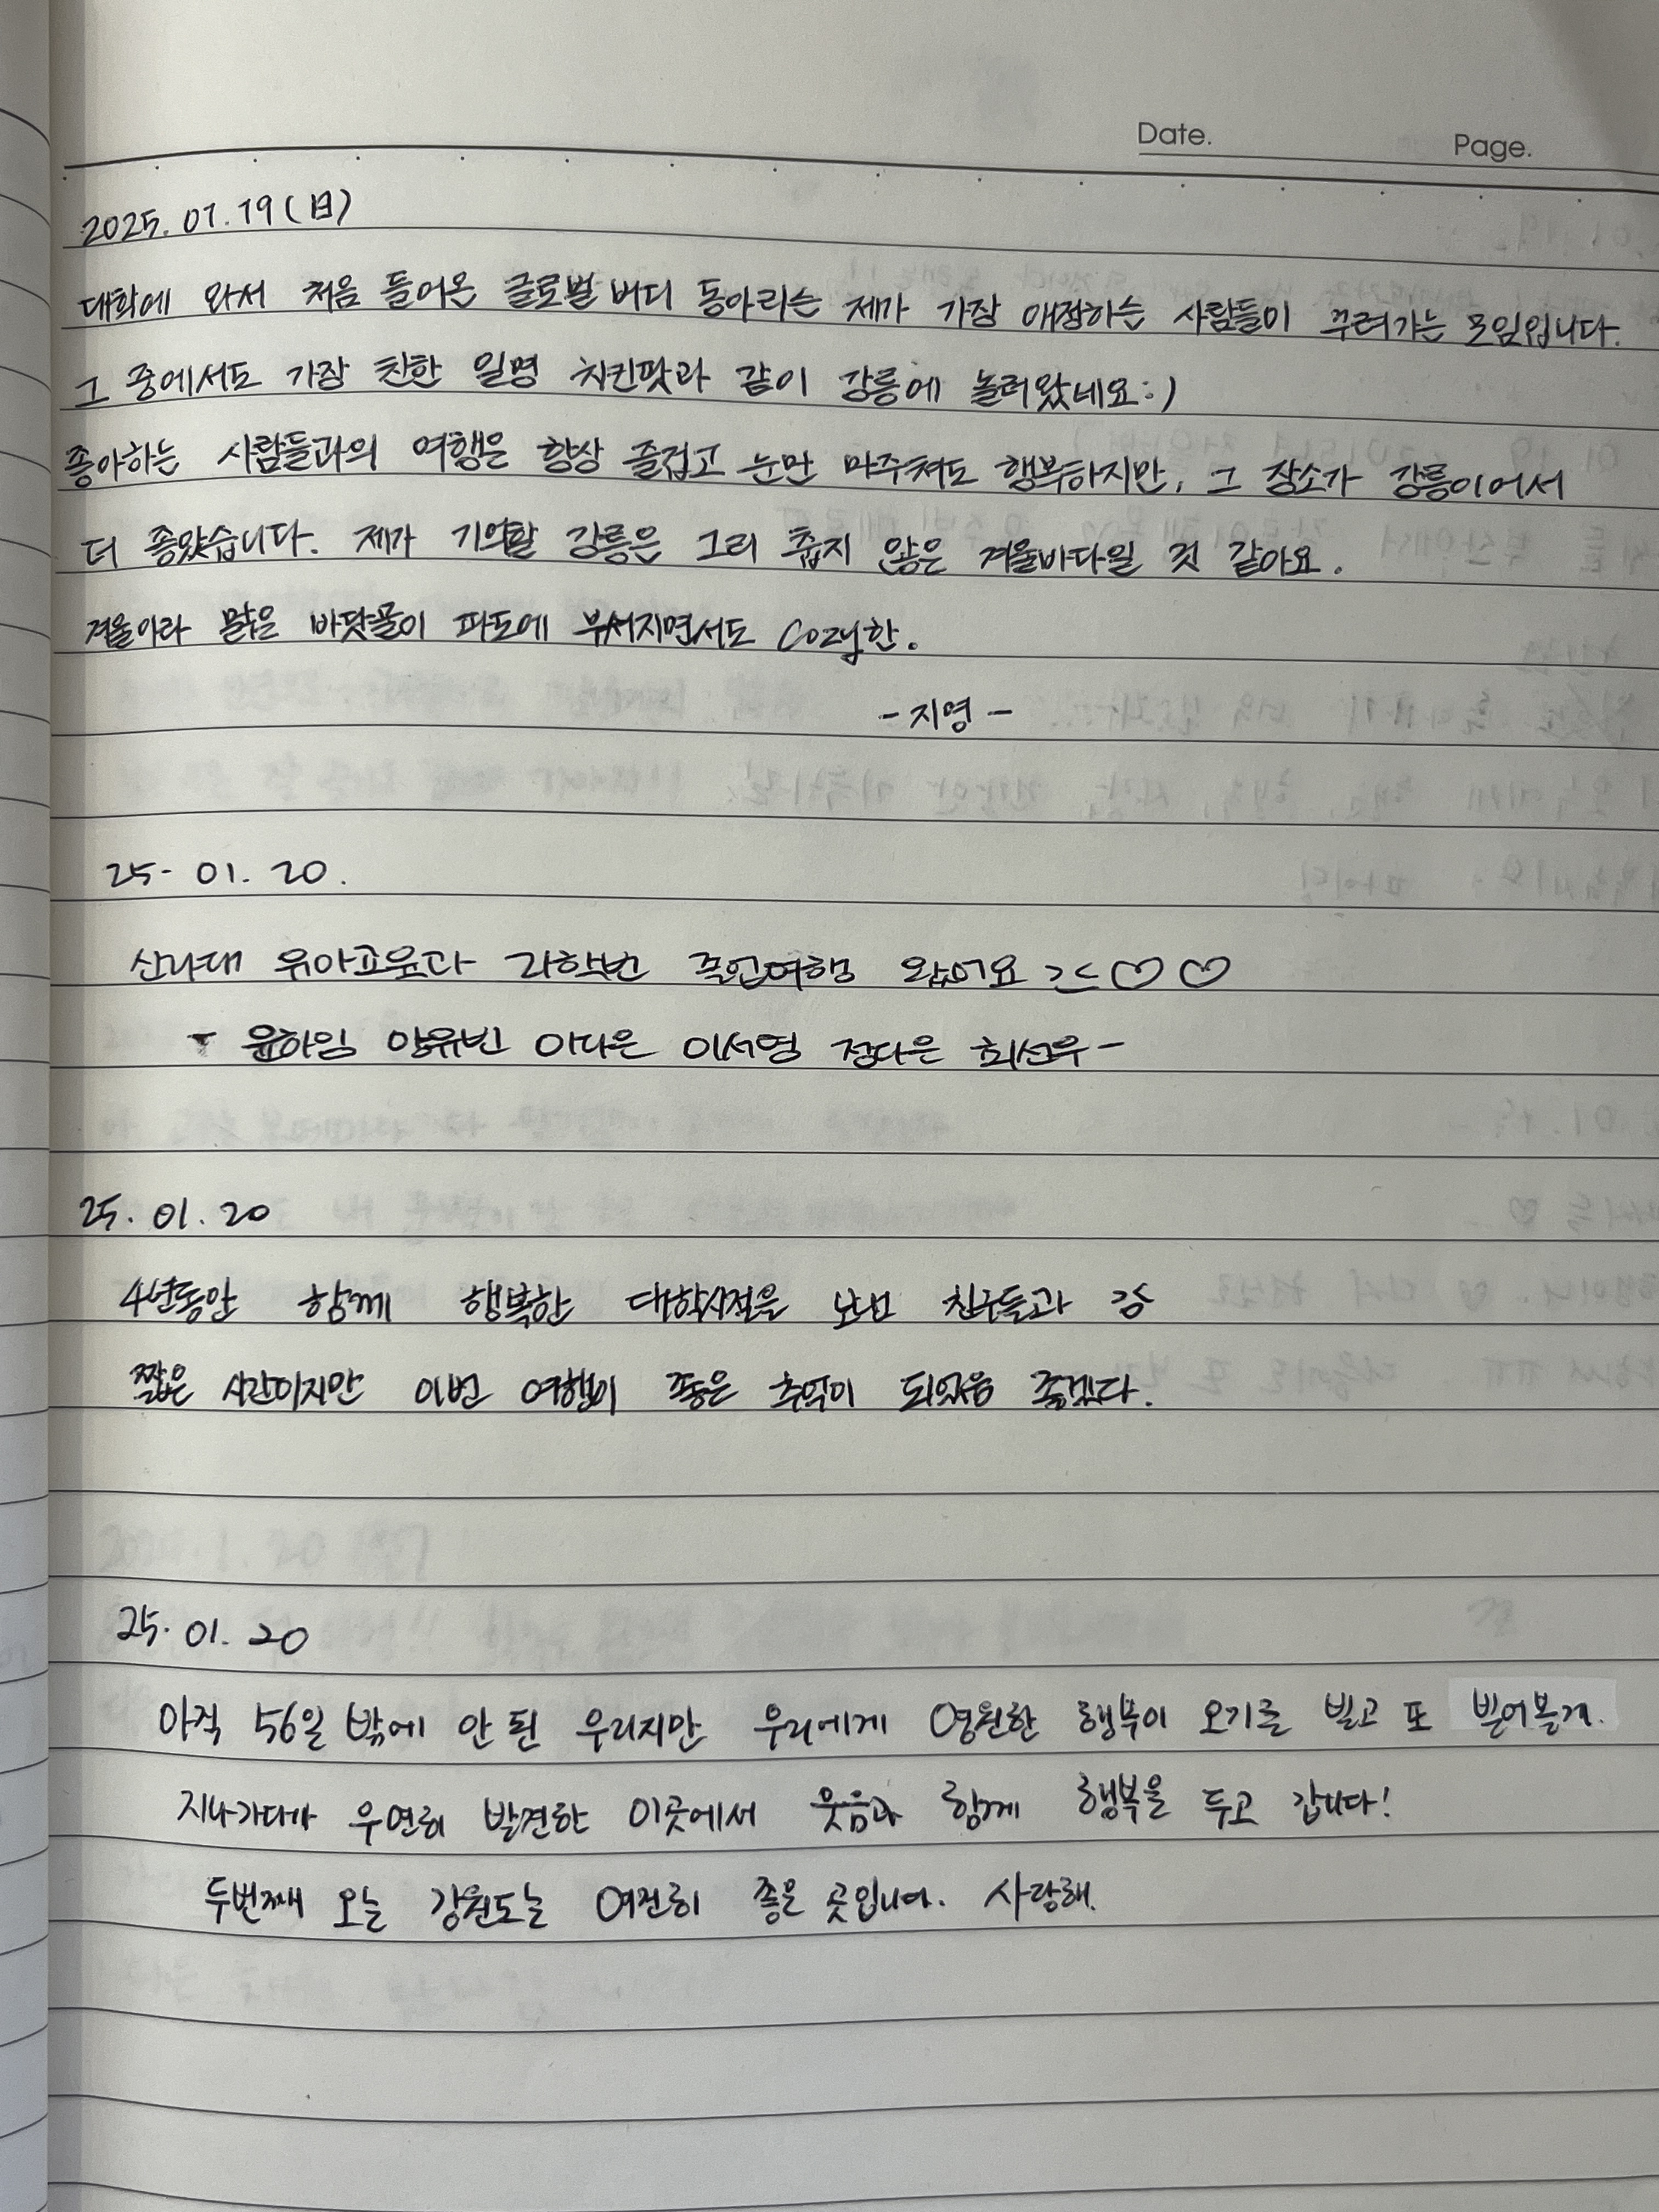 Date. Page.
2025.01.19(日)
대학에 와서 처음 들어온 글로벌버디 동아리는 제가 가장 애정하는 사람들이 꾸려가는 모임입니다.
그 중에서도 가장 친한 일명 치킨팟과 같이 강릉에 놀러왔네요:)
좋아하는 사람들과의 여행은 항상 즐겁고 눈만 마주쳐도 행복하지만, 그 장소가 강릉이어서
더 좋았습니다. 제가 기억할 강릉은 그리 춥지 않은 겨울바다일 것 같아요.
겨울이라 맑은 바닷물이 파도에 부서지면서도 cozy한.
-지영-
25. 01. 20.
신라대 유아교육과 21학번 졸업여행 왔어요 >_< ♡ ♡
- 윤하임 양유빈 이다은 이서영 정다은 최선우 -
25. 01. 20
4년동안 함께 행복한 대학시절을 보낸 친구들과
짧은 시간이지만 이번 여행이 좋은 추억이 되었음 좋겠다.
25. 01. 20
아직 56일 밖에 안 된 우리지만 우리에게 영원한 행복이 오기를 빌고 또 빌어볼게.
지나가다가 우연히 발견한 이곳에서 웃음과 함께 행복을 두고 갑니다!
두번째 오늘 강원도는 여전히 좋은 곳입니다. 사랑해.